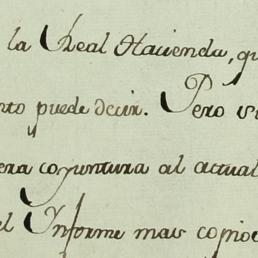 la Real Hacienda, qu
nto puede decir. Pero si
era coyuntura al actual
el Informe mas copio